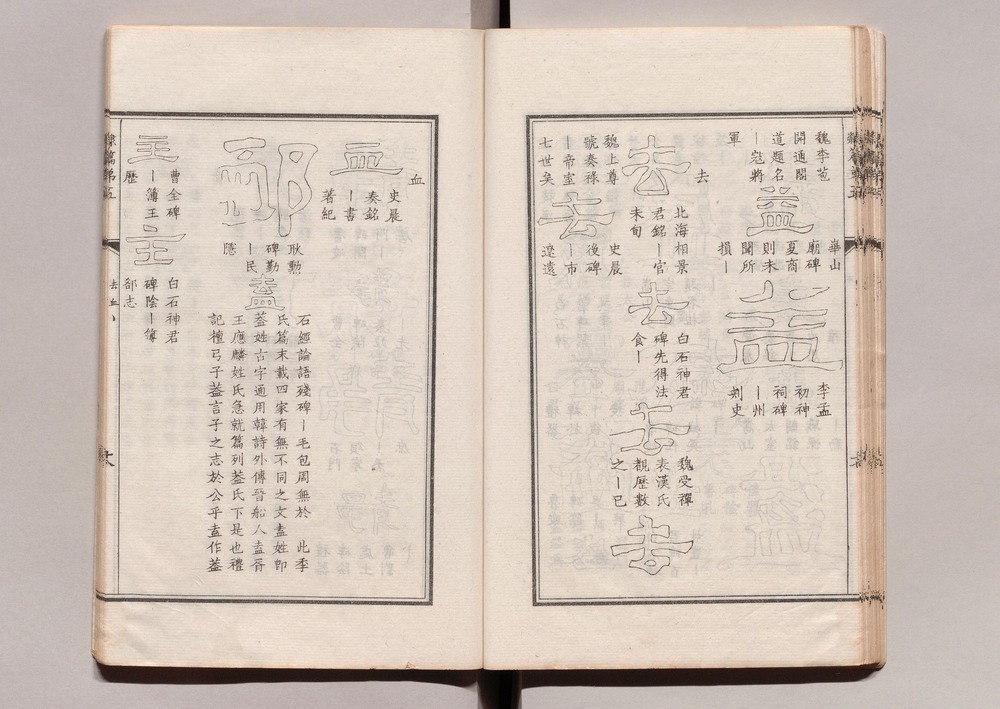 魏李苞
開通閣
道題名
｜寇將
軍
益
華山
廟碑
夏商
則未
聞所
損｜
益
李孟
初神
祠碑
｜州
刾史
去
去
北海相景
君銘｜官
未旬
去
白石神君
碑先得法
食｜
去
魏受禪
表漢氏
觀歷數
之｜已
去
魏上尊
號奏祿
｜帝室
七世矣
去
史晨
後碑
｜市
遼遠
血
血
史晨
奏銘
｜書
著紀
卹
耿勳
碑勤
｜民
隱
盍
石經論語殘碑｜毛包周無於
此季氏篇末載四家有無不同之文盍姓卽
葢姓古字通用韓詩外傳晉船人盍胥
王應麟姓氏急就篇列葢氏下是也禮
記檀弓子葢言子之志於公乎盍作葢
主
曹全碑
｜簿王
歷
主
白石神君
碑陰｜簿
郃志
去血丶